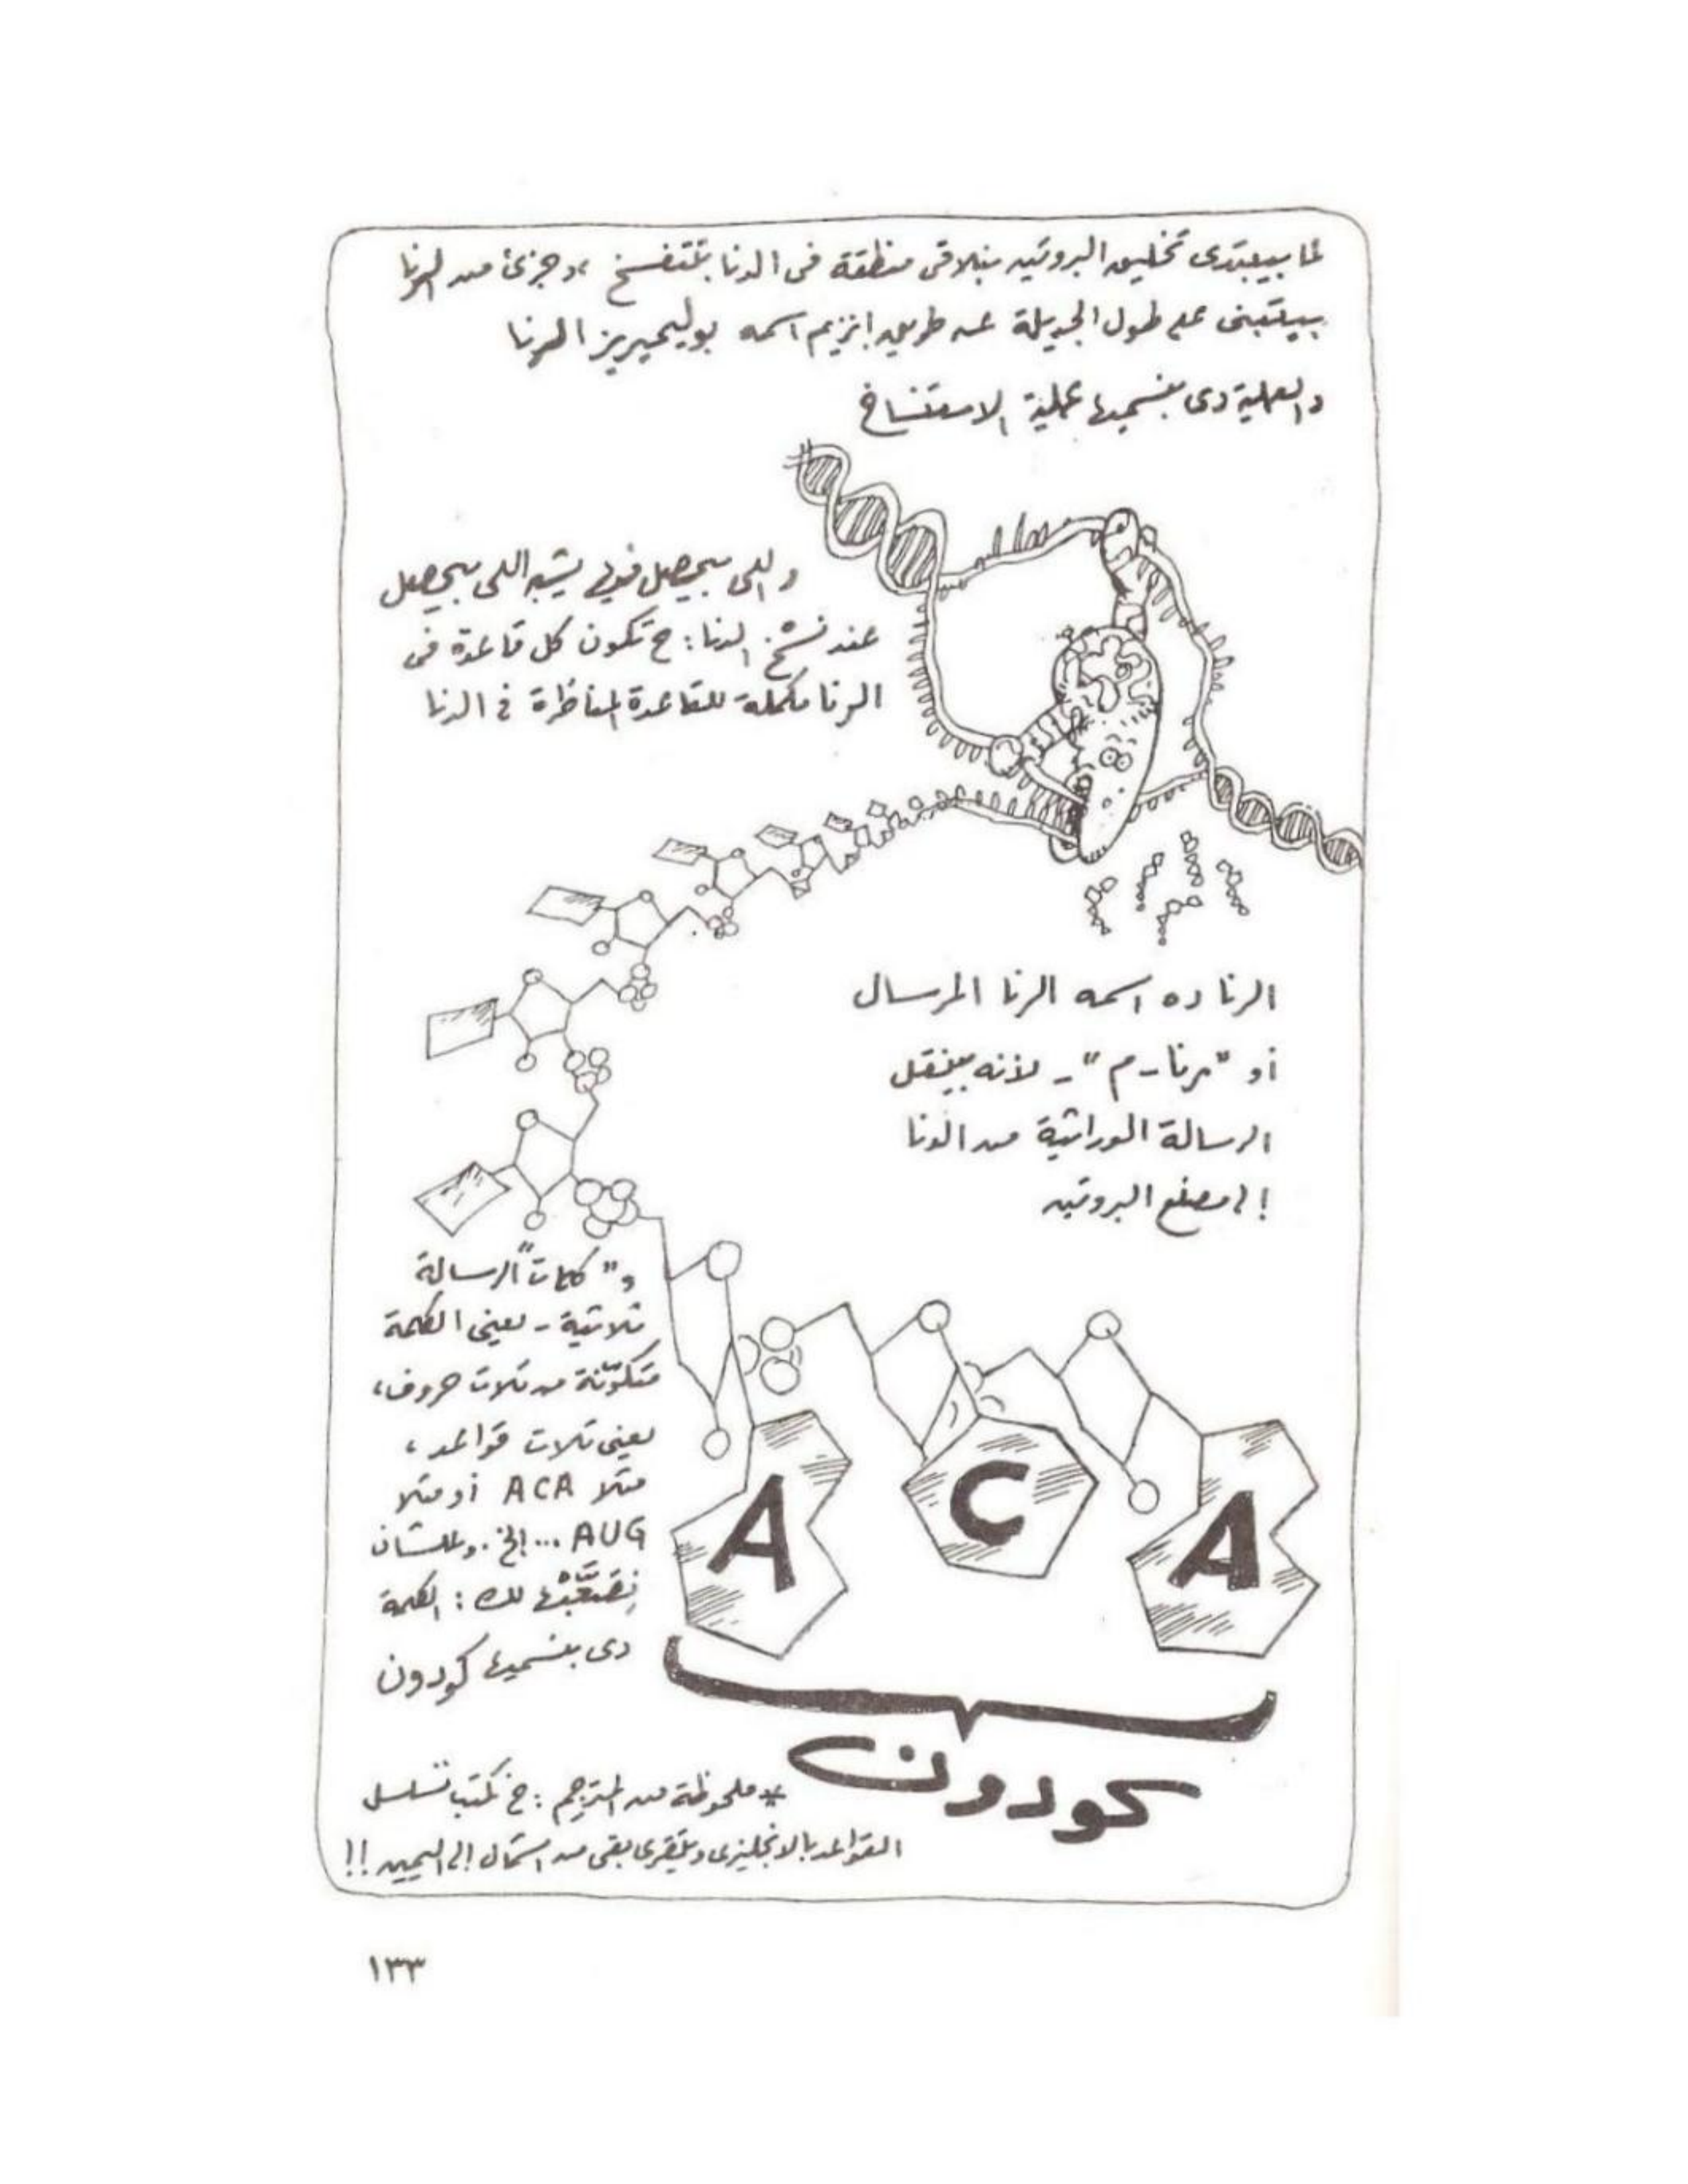 لما بيبتدى تخليق البروتين بنلاقى منطقة فى الدنا بتتفسخ ، وجزئ من الرنا
بيتبنى على طول الجديلة عن طريق إنزيم اسمه بوليميريز الرنا
والعملية دى بنسميها عملية الاستنساخ
واللى بيحصل فيها يشبه اللى بيحصل
عند نسْخ الدنا : ح تكون كل قاعدة فى
الرنا مكملة للقاعدة المناظرة فى الدنا
الرنا ده اسمه الرنا المرسال
أو "رنا - م" - لأنه بينقل
الرسالة الوراثية من الدنا
إلى مصنع البروتين
و"كلمات" الرسالة
ثلاثية - يعنى الكلمة
متكوّنة من تلات حروف ،
يعنى تلات قواعد ،
مثلا ACA أو مثلا
AUG ... إلخ . وعلشان
نصَعَّبْها لك : الكلمة
دى بنسميها كودون
A C A
كودون
* ملحوظة من المترجم : ح نكتب تسلسل
القواعد بالانجليزى وتتقرى بقى من الشمال إلى اليمين !!
١٣٣